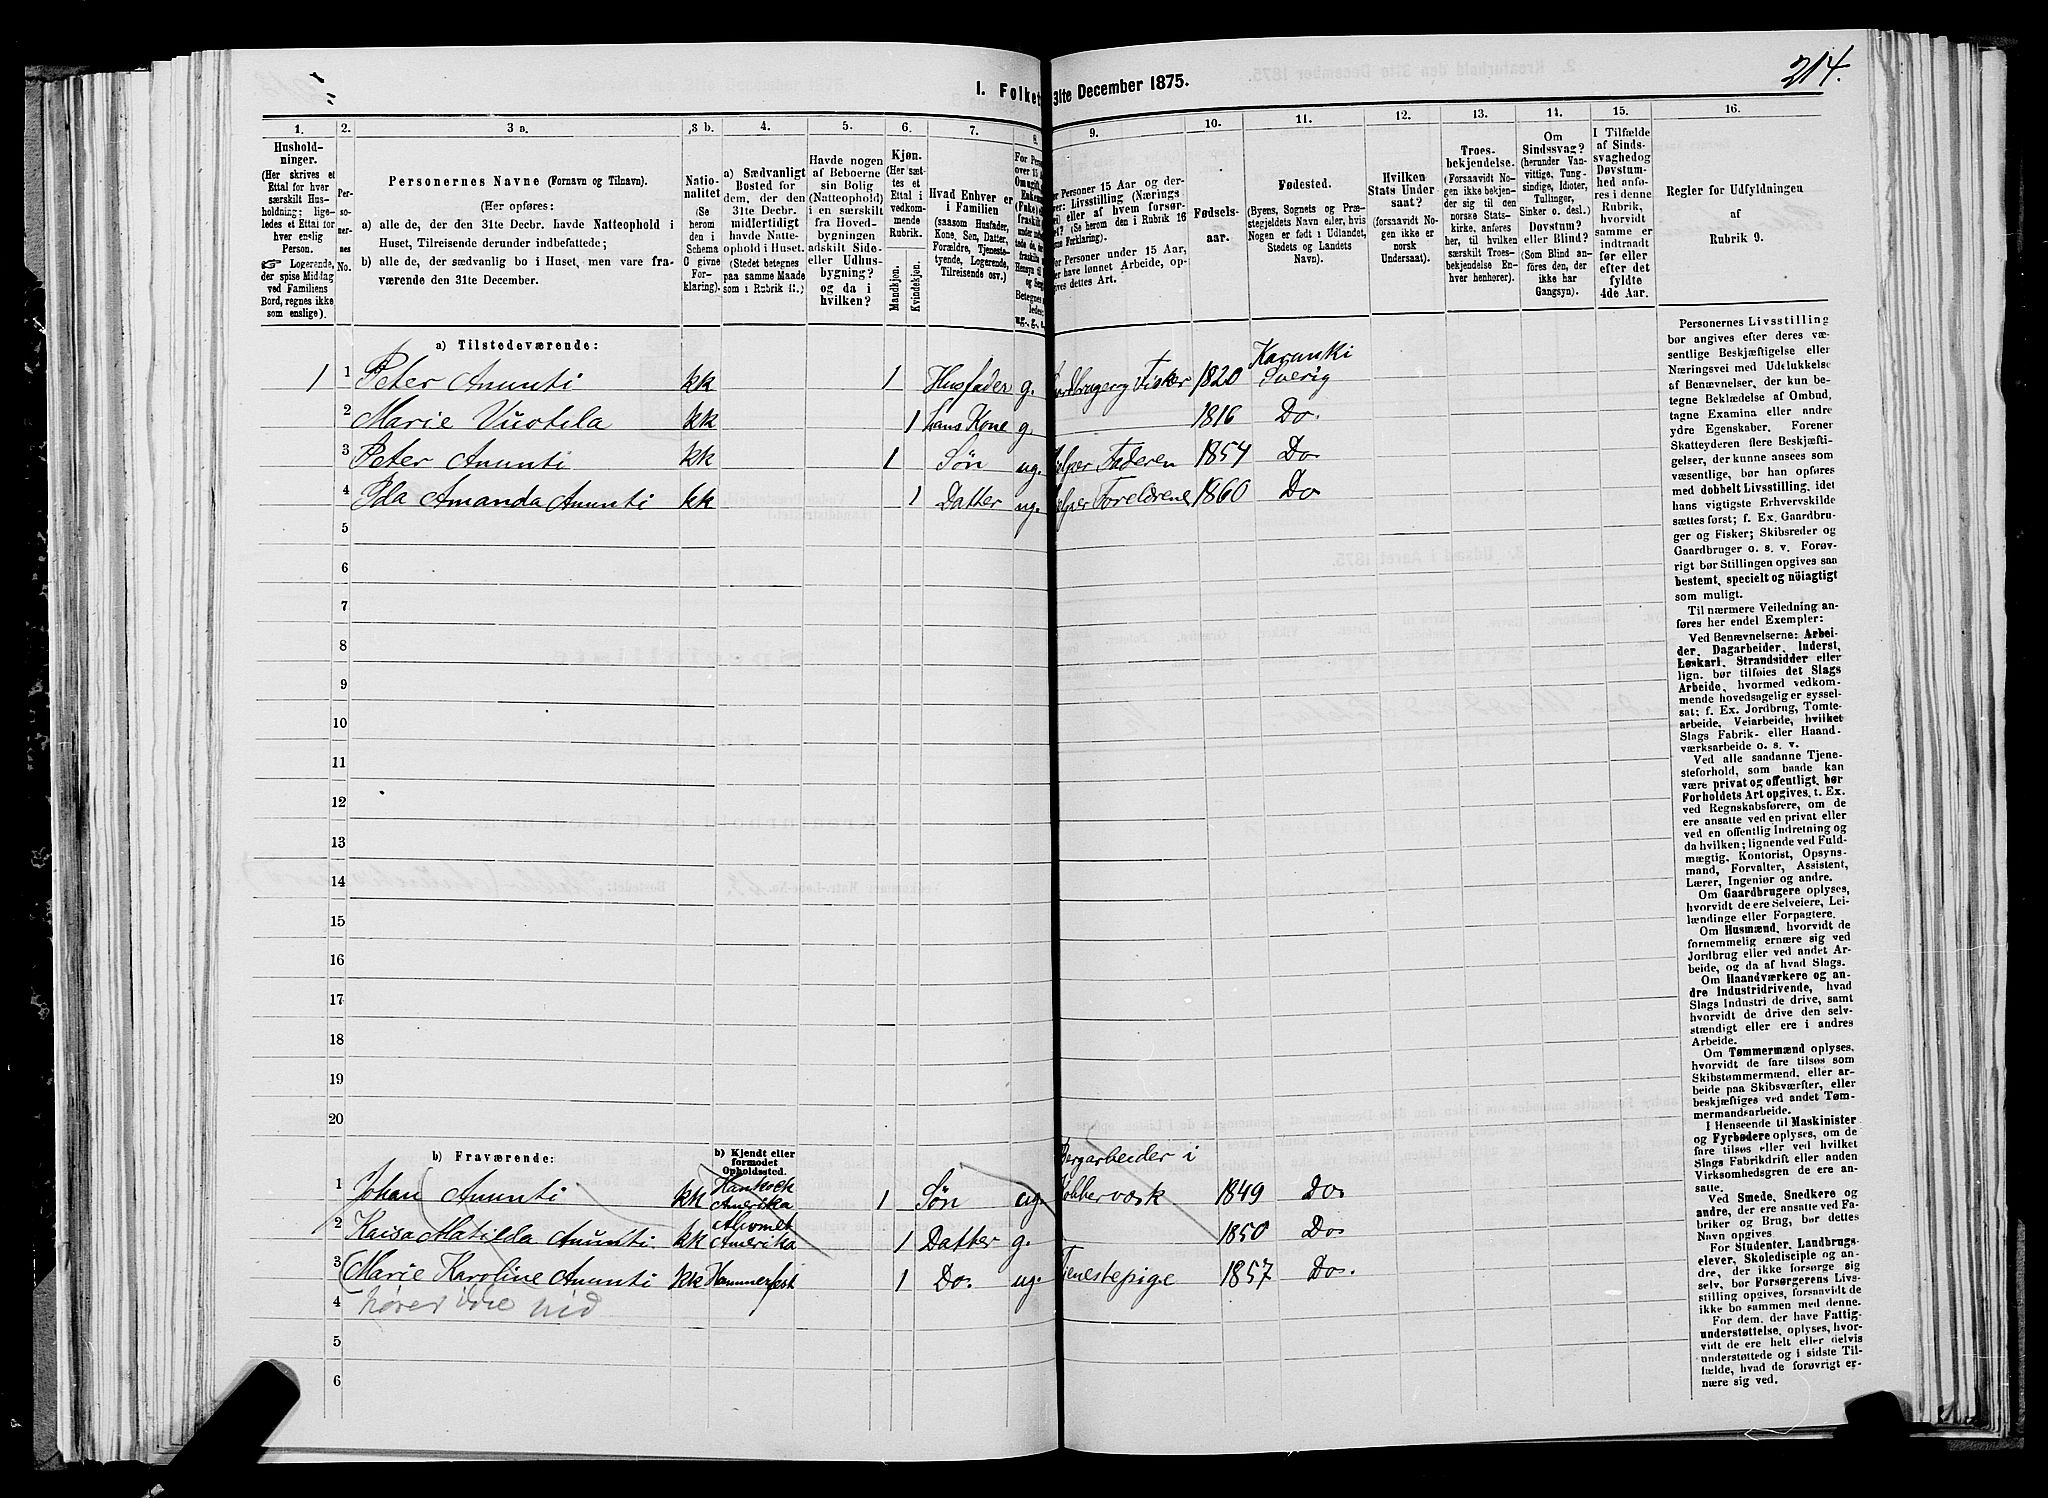 214.
I. Folket
31te December 1875.
1. 2. 3 a. 3 b. 4. 5. 6. 7. 8. 9. 10. 11. 12. 13. 14. 15. 16.
Hushold-
ninger.
(Her skrives et
Ettal for hver
særskilt Hus-
holdning; lige-
ledes et Ettal for
hver enslig
Person.
☞ Logerende,
der spise Middag
ved Familiens
Bord, regnes ikke
som enslige).
Per-
so-
ner-
nes
No.
Personernes Navne (Fornavn og Tilnavn).
(Her opføres:
a) alle de, der den 31te Decbr. havde Natteophold i
Huset, Tilreisende derunder indbefattede;
b) alle de, der sædvanlig bo i Huset, men vare fra-
værende den 31te December.
Natio-
nalitet
(Se
herom
den i
Schema
G givne
For-
klaring).
a) Sædvanligt
Bosted for
dem, der den
31te Decbr.
midlertidigt
havde Natte-
ophold i Huset.
(Stedet betegnes
paa samme Maade
som i Rubrik 11.)
Havde nogen
af Beboerne
sin Bolig
(Natteophold)
i en særskilt
fra Hoved-
bygningen
adskilt Side-
eller Udhus-
bygning?
og da i
hvilken?
Kjøn.
(Her sæt-
tes et
Ettal i
vedkom-
mende
Rubrik.
Mandkjøn.
Kvindekjøn.
Hvad Enhver er
i Familien
(saasom Husfader,
Kone, Søn, Datter,
Forældre, Tjeneste-
tyende, Logerende,
Tilreisende osv.)
For Perso
over 15 A
Omugift,
Enkem
(Fnke)
fraskilt
Hensyn til
og Seng
Betegnes
ledes:
ug., g., e
r Personer 15 Aar og der-
ver: Livsstilling (Nærings
vei) eller af hvem forsør-
get? (Se herom den i Rubrik 16
vne Forklaring).
or Personer under 15 Aar,
er have lønnet Arbeide, op-
gives dettes Art.
Fødsels-
aar.
Fødested.
(Byens, Sognets og Præ-
stegjeldets Navn eller, hvis
Nogen er født i Udlandet,
Stedets og Landets
Navn).
Hvilken
Stats Under
saat?
(forsaavidt No-
gen ikke er
norsk
Undersaat).
Troes-
bekjendelse.
(Forsaavidt No-
gen ikke bekjen-
der sig til den
norske Stats-
kirke, anføres
her, til hvilken
særskilt Troes-
bekjendelse En-
hver henhører).
Om
Sindssvag?
(herunder Van-
vittige, Tung-
sindige, Idioter,
Tullinger,
Sinker o. desl.)
Døvstum?
eller Blind?
(Som Blind an-
føres den, der
ikke har
Gangsyn).
I Tilfælde
af Sinds-
svaghedog
Døvstum-
hed anfø-
res i denne
Rubrik,
hvorvidt
samme er
indtraadt
før eller
efter det
fyldte
4de Aar.
Regler for Udfyldningen
af
Rubrik 9.
a) Tilstedeværende:
1 1 Peter Anunti kk 1 Husfader g. ordbruger og Fisker 1820 Karunki Sverig
2 Marie Vuotila kk 1 hans Kone g. 1816 Do.
3 Peter Anunti kk 1 Søn ug. jelper Faderen 1854 Do.
4 Ida Amanda Anunti kk 1 Datter ug. jelper Foreldrene 1860 Do
5
6
7
8
9
10
11
12
13
14
15
16
17
18
19
20
b) Fraværende:
b) Kjendt eller
formodet
Opholdssted.
1 Johan Anunti kk Hankock Amerika 1 Søn ug. Bergarbeider i obberværk 1849 Do.
2 Kaisa Matilda Anunti kk Amerika 1 Datter g. 1850 Do.
3 (Marie Karoline Anunti kk Hammerfest 1 Do. ug. Tjenestepige 1857 Do.
4 hører ikke hid
5
6
Personernes Livsstilling
bør angives efter deres væ-
sentlige Beskjæftigelse eller
Næringsvei med Udelukkelse
af Benævnelser, der kun be-
tegne Beklædelse af Ombud,
tagne Examina eller andre
ydre Egenskaber. Forener
Skatteyderen flere Beskjæfti-
gelser, der kunne ansees som
væsentlige, bør han opføres
med dobbelt Livsstilling, idet
hans vigtigste Erhvervskilde
sættes først; f. Ex. Gaardbru-
ger og Fisker; Skibsreder og
Gaardbruger o. s. v. Forøv-
rigt bør Stillingen opgives saa
bestemt, specielt og nöiagtigt
som muligt.
Til nærmere Veiledning an-
føres her endel Exempler:
Ved Benævnelserne: Arbei-
der, Dagarbeider, Inderst,
Løskarl, Strandsidder eller
lign. bør tilføies det Slags
Arbeide, hvormed vedkom-
mende hovedsagelig er syssel-
sat; f. Ex. Jordbrug, Tomte-
arbeide, Veiarbeide, hvilket
Slags Fabrik- eller Haand-
værksarbeide o. s. v.
Ved alle saadanne Tjene-
steforhold, som baade kan
være privat og offentligt, bør
Forholdets Art opgives, f. Ex.
ved Regnskabsførere, om de
ere ansatte ved en privat eller
ved en offentlig Indretning og
da hvilken; lignende ved Fuld-
mægtig, Kontorist, Opsyns-
mand, Forvalter, Assistent,
Lærer, Ingeniør og andre.
Om Gaardbrugere oplyses,
hvorvidt de ere Selveiere, Lei-
lændinge eller Forpagtere.
Om Husmænd, hvorvidt de
fornemmelig ernære sig ved
Jordbrug eller ved andet Ar-
beide, og da af hvad Slags.
Om Haandværkere og an-
dre Industridrivende, hvad
Slags Industri de drive, samt
hvorvidt de drive den selv-
stændigt eller ere i andres
Arbeide.
Om Tømmermænd oplyses,
hvorvidt de fare tilsøs som
Skibstømmermænd, eller ar-
beide paa Skibsværfter, eller
beskjæftiges ved andet Tøm-
mermandsarbeide.
I Henseende til Maskinister
og Fyrbødere oplyses, om de
fare tilsøs eller ved hvilket
Slags Fabrikdrift eller anden
Virksomhedsgren de ere an-
satte.
Ved Smede, Snedkere og
andre, der ere ansatte ved Fa-
briker og Brug, bør dettes
Navn opgives.
For Studenter, Landbrugs-
elever, Skoledisciple og an-
dre, der ikke forsørge sig
selv, bør Forsørgerens Livs-
stilling opgives, forsaavidt de
ikke bo sammen med denne.
For dem, der have Fattig-
understøttelse, oplyses, hvor-
vidt de ere helt eller delvis
understøttede og i sidste Til-
fælde, hvad de forøvrigt er-
nære sig ved.